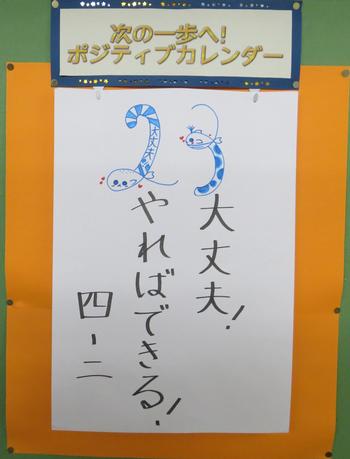 次の一歩へ!
ポジティブカレンダー
23
大丈夫
大丈夫!
やればできる!
四-二